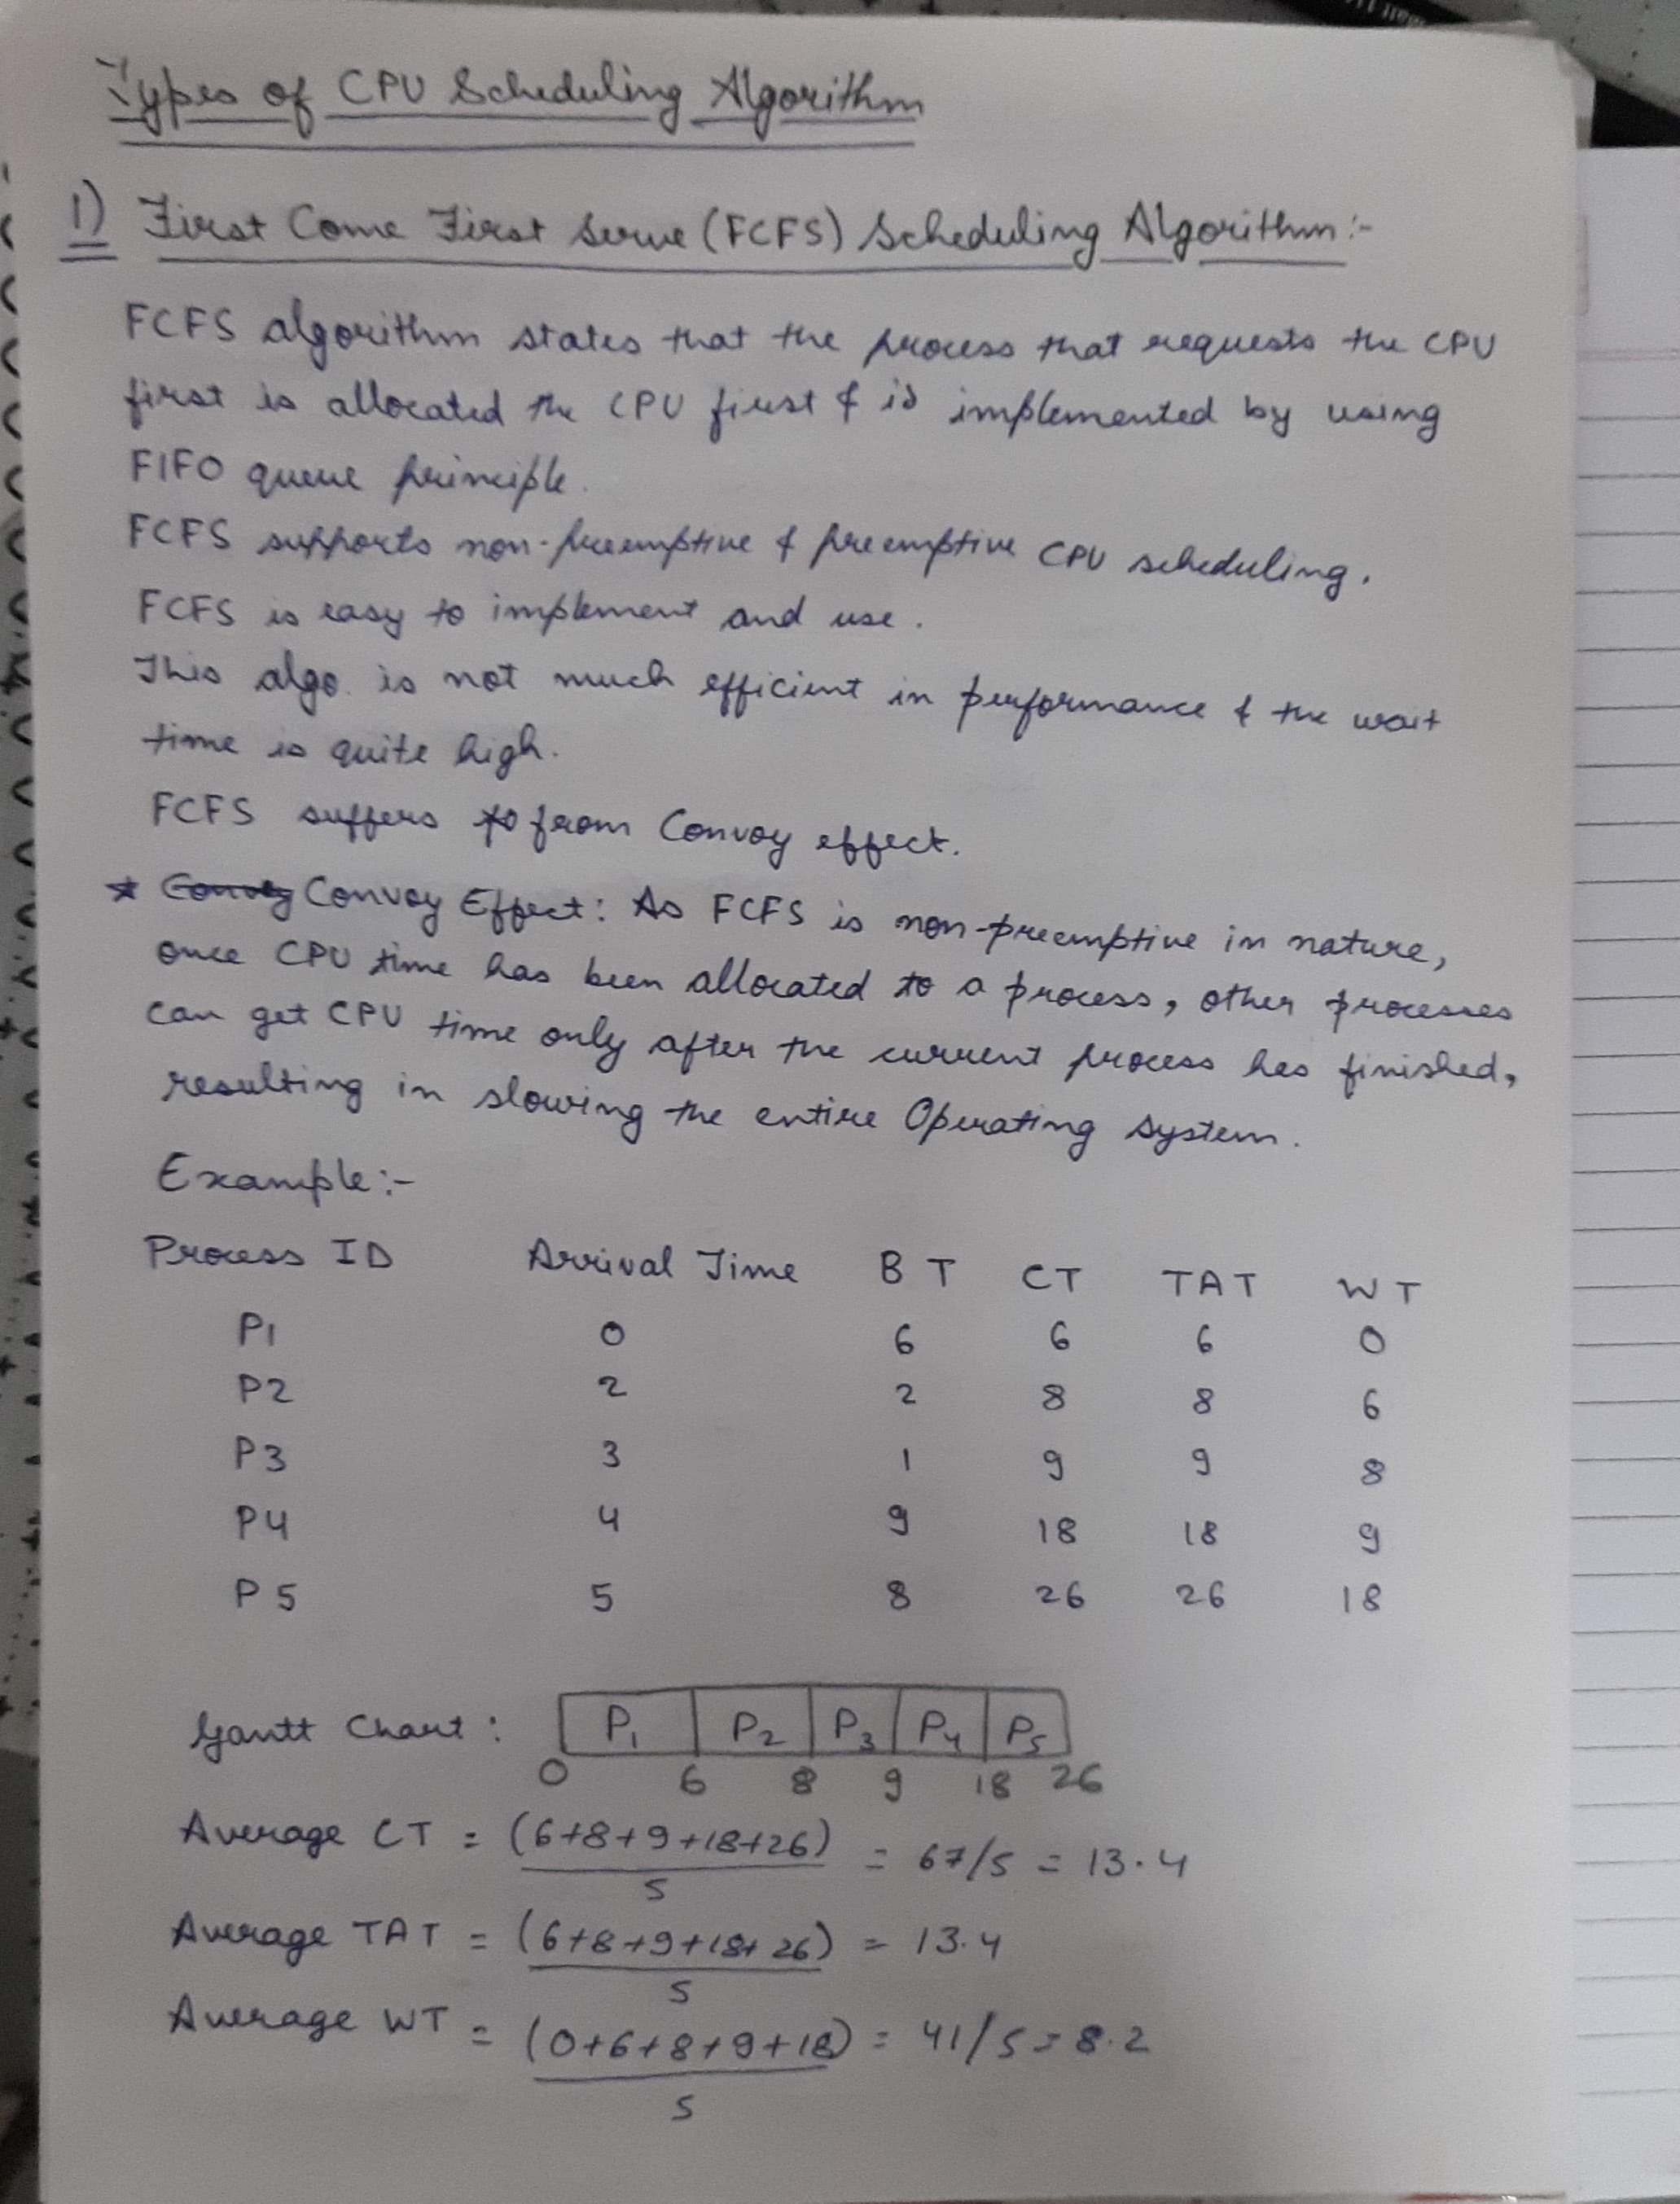 Types of CPU Scheduling Algorithm
1) First Come First Serve (FCFS) Scheduling Algorithm:-
FCFS algorithm states that the process that requests the CPU
first is allocated the CPU first & is implemented by using
FIFO queue principle.
FCFS supports non-preemptive & preemptive CPU scheduling.
FCFS is easy to implement and use.
This algo. is not much efficient in performance & the wait
time is quite high.
FCFS suffers from Convoy effect.
* Convoy Effect: As FCFS is non-preemptive in nature,
once CPU time has been allocated to a process, other processes
can get CPU time only after the current process has finished,
resulting in slowing the entire Operating system.
Example:-
Process ID Arrival Time BT CT TAT WT
P1 0 6 6 6 0
P2 2 2 8 8 6
P3 3 1 9 9 8
P4 4 9 18 18 9
P5 5 8 26 26 18
Gantt Chart: P1 P2 P3 P4 P5
0 6 8 9 18 26
Average CT = (6+8+9+18+26) = 67/5 = 13.4
5
Average TAT = (6+8+9+18+26) = 13.4
5
Average WT = (0+6+8+9+18) = 41/5 = 8.2
5